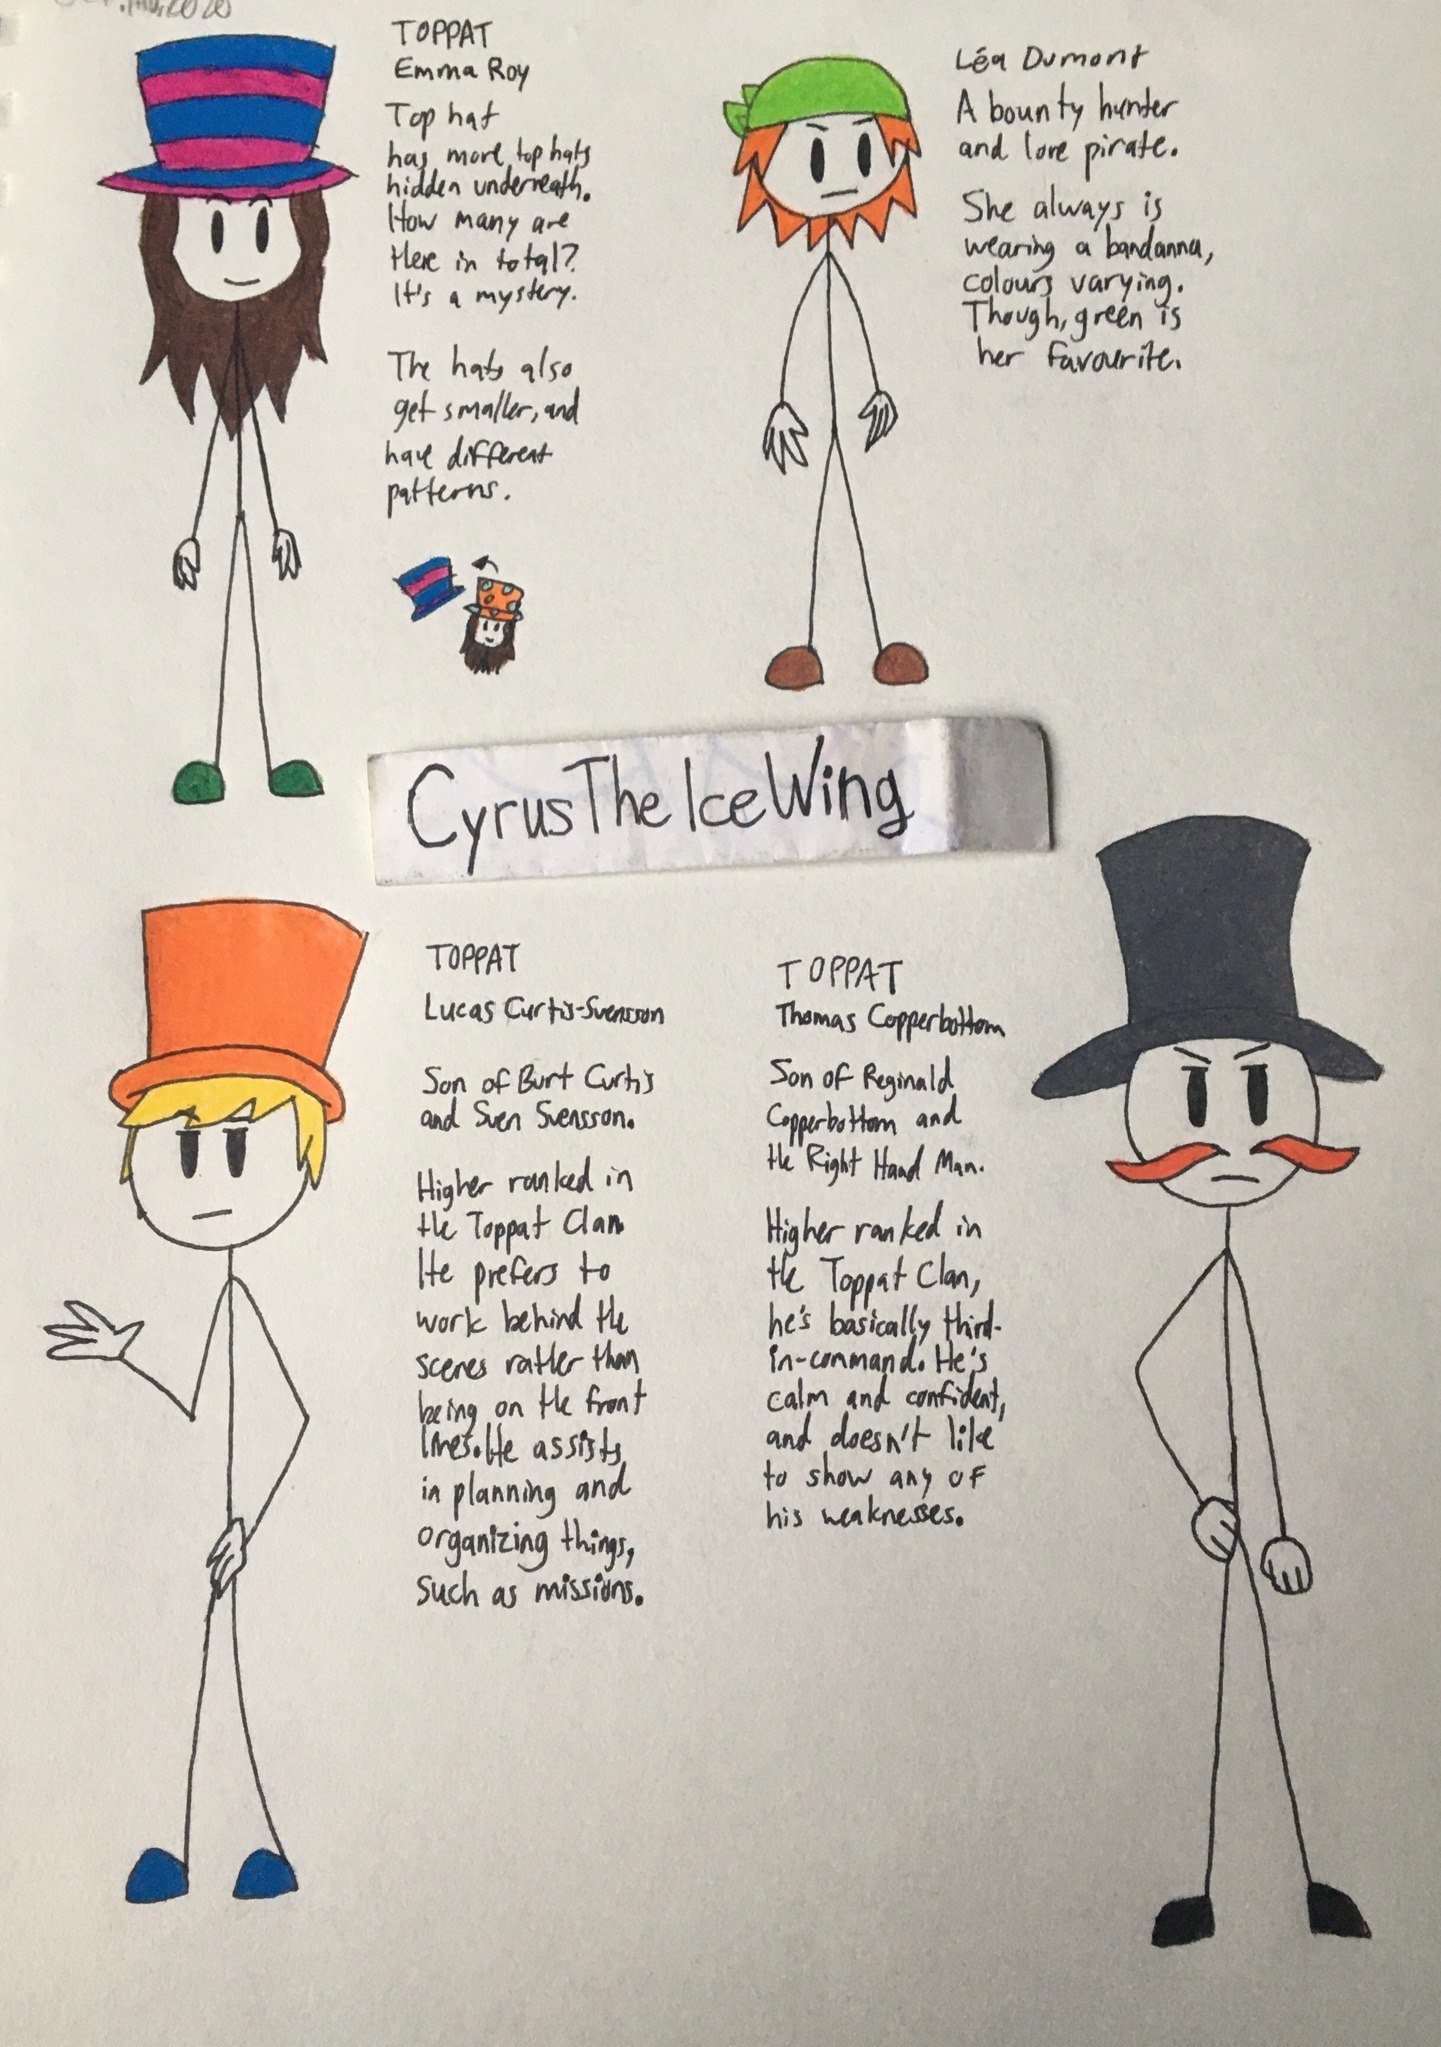 TOPPAT
Emma Roy
Top hat
has more top hats
hidden underneath.
How many are
there in total?
It's a mystery.
The hats also
get smaller, and
have different
patterns.
Léa Dumont
A bounty hunter
and lone pirate.
She always is
wearing a bandanna,
colours varying.
Though, green is
her favourite.
CyrusTheIceWing
TOPPAT
Lucas Curtis-Svensson
Son of Burt Curtis
and Sven Svensson.
Higher ranked in
the Toppat Clan
He prefers to
work behind the
scenes rather than
being on the front
lines. He assists
in planning and
organizing things,
such as missions.
TOPPAT
Thomas Copperbottom
Son of Reginald
Copperbottom and
the Right Hand Man.
Higher ranked in
the Toppat Clan,
he's basically third-
in-command. He's
calm and confident,
and doesn't like
to show any of
his weaknesses.